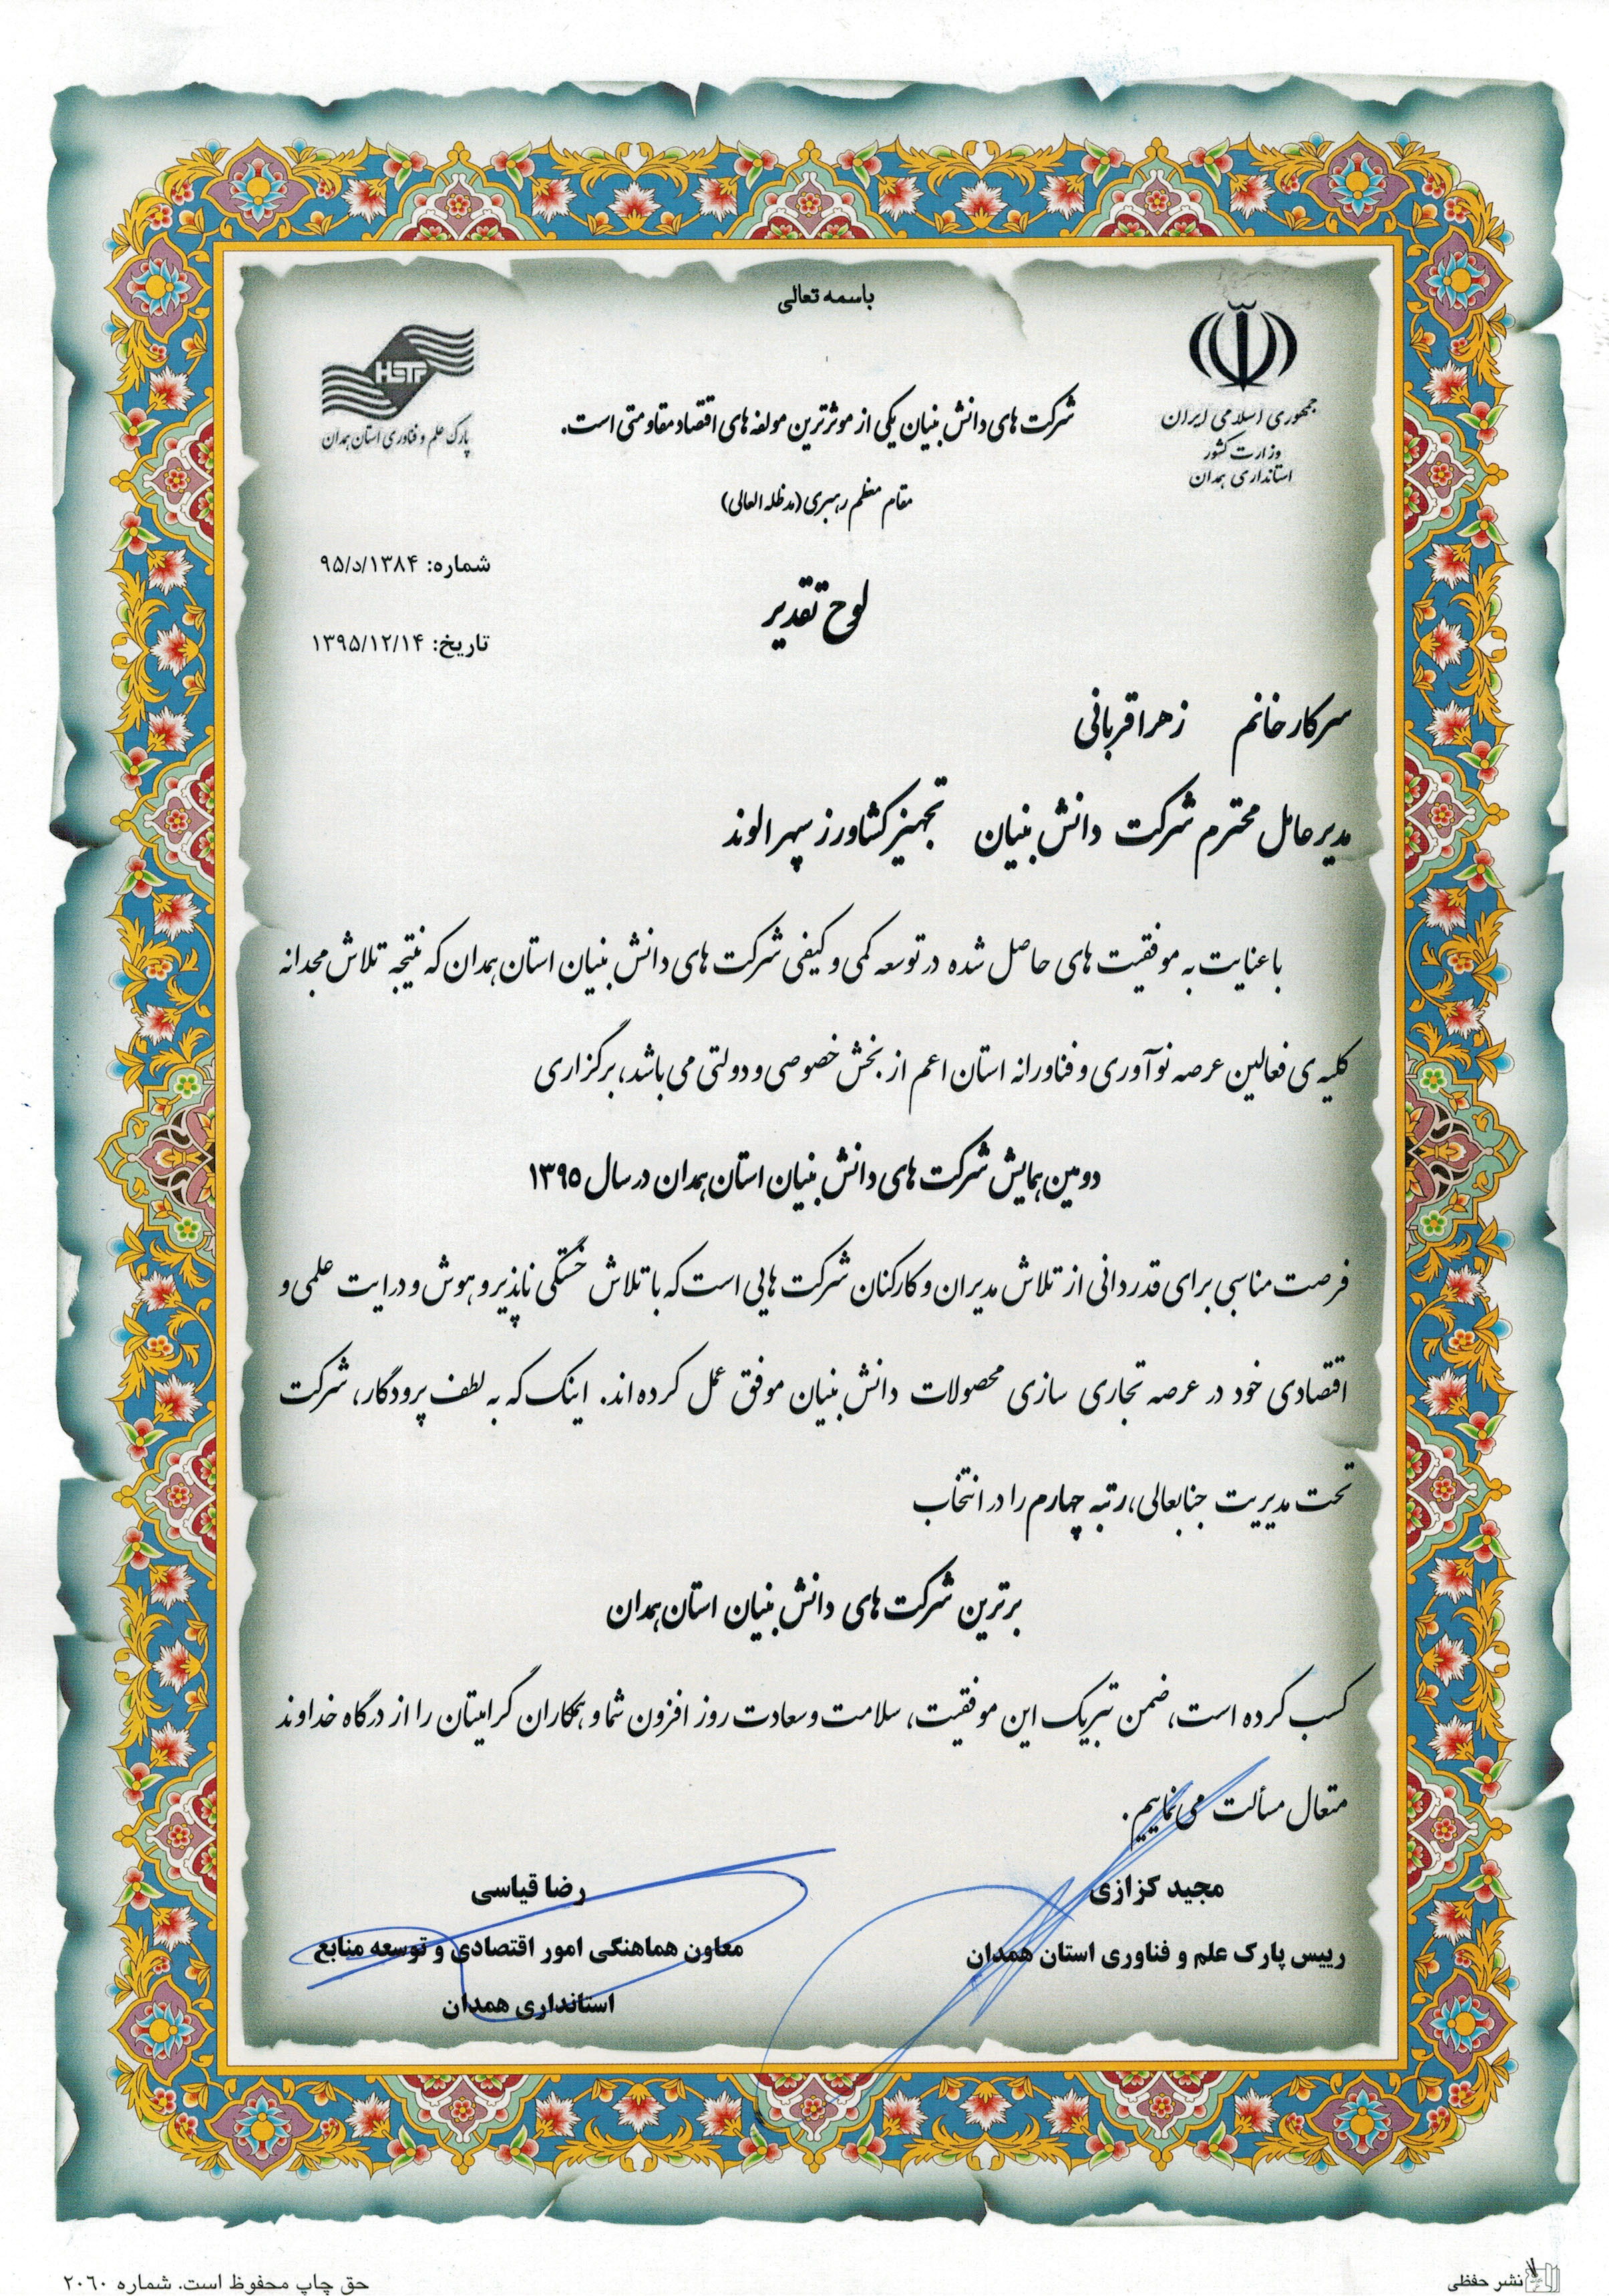 باسمه تعالی
جمهوری اسلامی ایران
وزارت کشور
استانداری همدان
HSTP
پارک علم و فناوری استان همدان
شرکت های دانش بنیان یکی از موثرترین مولفه های اقتصاد مقاومتی است.
مقام معظم رهبری (مدظله العالی)
شماره: ۹۵/د/۱۳۸۴
تاریخ: ۱۳۹۵/۱۲/۱۴
لوح تقدیر
سرکار خانم زهرا قربانی
مدیر عامل محترم شرکت دانش بنیان تجهیز کشاورز سپهر الوند
با عنایت به موفقیت های حاصل شده در توسعه کمی و کیفی شرکت های دانش بنیان استان همدان که نتیجه تلاش مجدانه
کلیه ی فعالین عرصه نوآوری و فناورانه استان اعم از بخش خصوصی و دولتی می باشد، برگزاری
دومین همایش شرکت های دانش بنیان استان همدان در سال ۱۳۹۵
فرصت مناسبی برای قدردانی از تلاش مدیران و کارکنان شرکت هایی است که با تلاش خستگی ناپذیر و هوش و درایت علمی و
اقتصادی خود در عرصه تجاری سازی محصولات دانش بنیان موفق عمل کرده اند. اینک که به لطف پرودگار، شرکت
تحت مدیریت جنابعالی، رتبه چهارم را در انتخاب
برترین شرکت های دانش بنیان استان همدان
کسب کرده است، ضمن تبریک این موفقیت، سلامت و سعادت روز افزون شما و همکاران گرامیتان را از درگاه خداوند
متعال مسألت می نماییم.
مجید کزازی
رییس پارک علم و فناوری استان همدان
رضا قیاسی
معاون هماهنگی امور اقتصادی و توسعه منابع
استانداری همدان
نشر حفظی
حق چاپ محفوظ است. شماره ۲۰۶۰